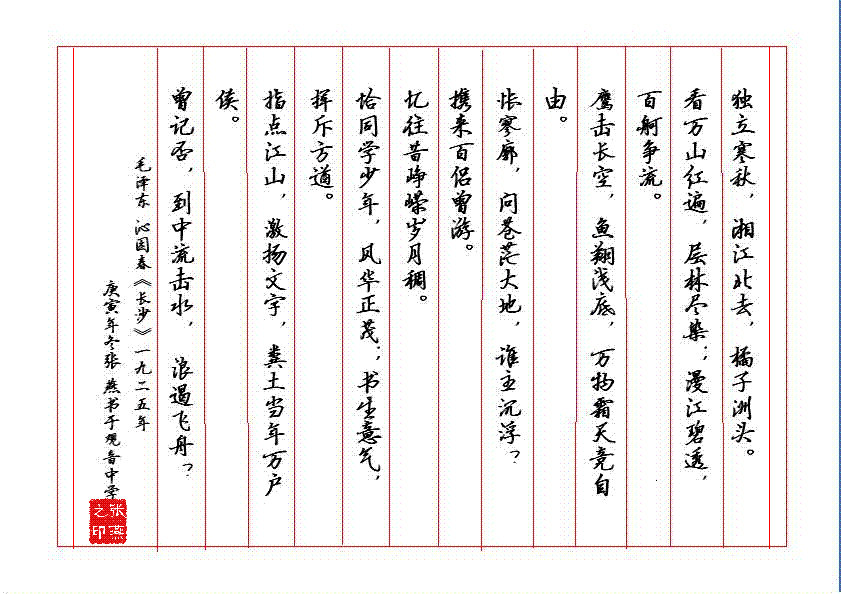 独立寒秋，湘江北去，橘子洲头。
看万山红遍，层林尽染；漫江碧透，
百舸争流。
鹰击长空，鱼翔浅底，万物霜天竞自
由。
怅寥廓，问苍茫大地，谁主沉浮？
携来百侣曾游。
忆往昔峥嵘岁月稠。
恰同学少年，风华正茂；书生意气，
挥斥方遒。
指点江山，激扬文字，粪土当年万户
侯。
曾记否，到中流击水，浪遏飞舟？
毛泽东 沁园春《长沙》一九二五年
庚寅年冬张燕书于观音中学
张燕
之印